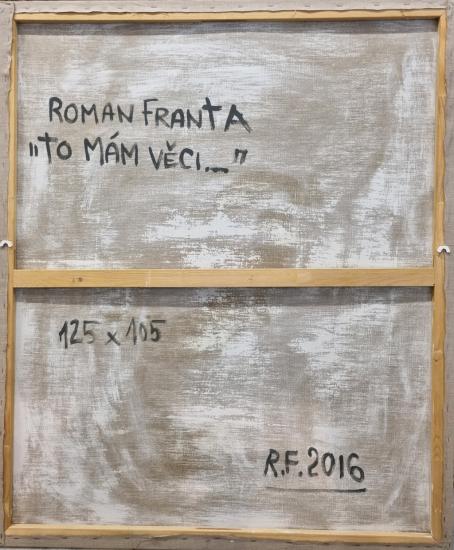 ROMAN FRANTA
„TO MÁM VĚCI..."
125 x 105
R.F. 2016